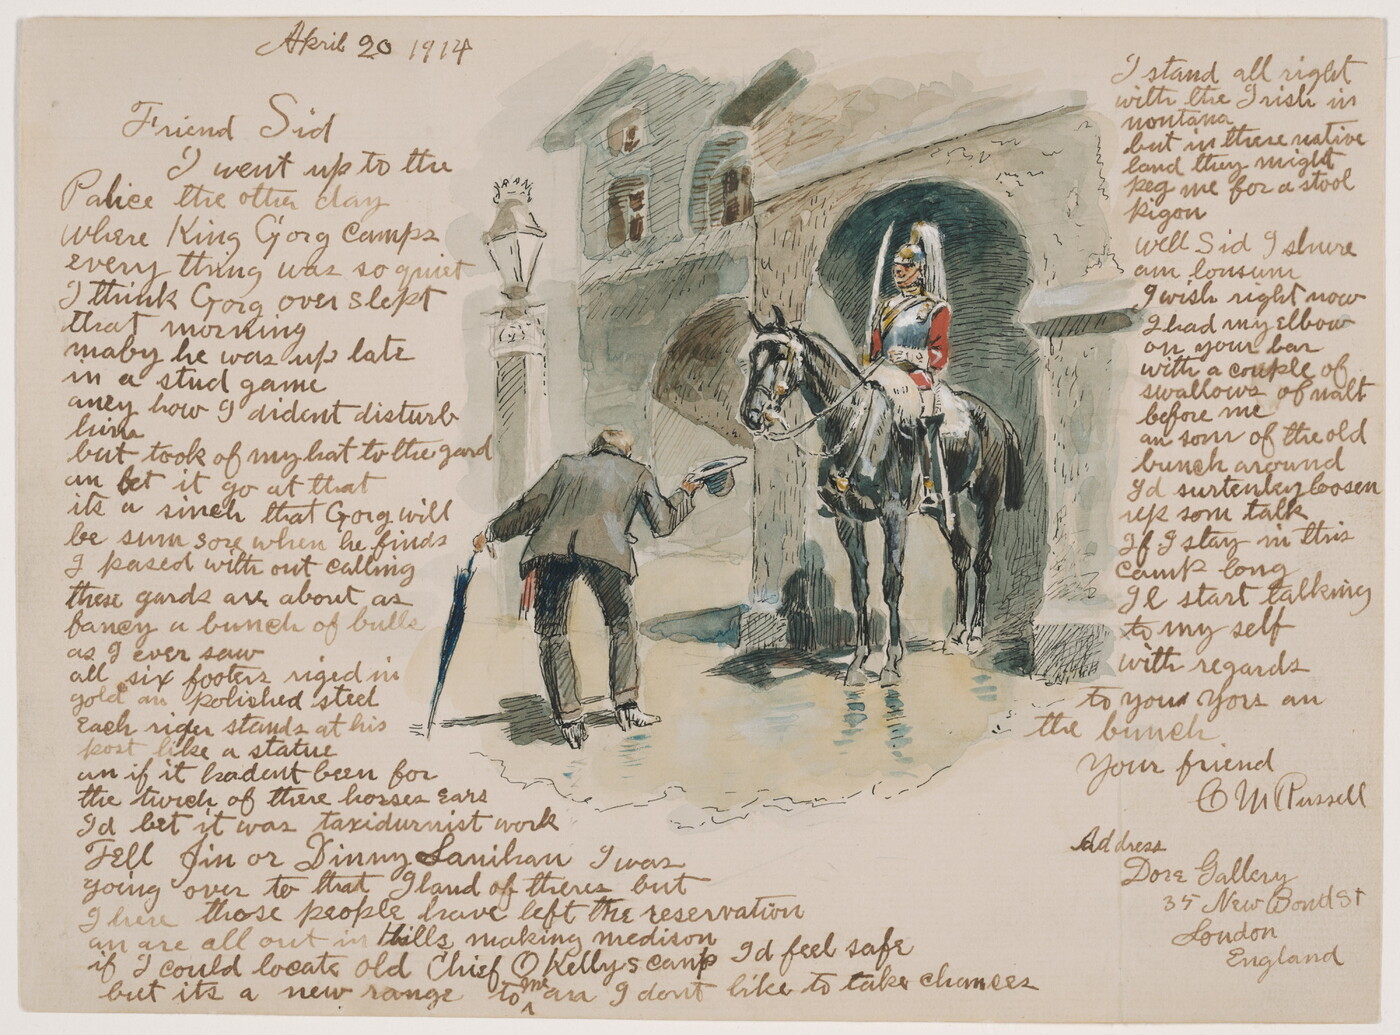 April 20 1914
Friend Sid
I went up to the
Palice the other day
where King Gorg camps
every thing was so quiet
I think Gorg over slept
that morning
maby he was up late
in a stud game
aney how I dident disturb
him
but took of my hat to the gard
an let it go at that
its a sinch that Gorg will
be sum sore when he finds
I pased with out calling
these gards are about as
fancy a bunch of bulls
as I ever saw
all six footers riged in
gold an polished steel
Each rider stands at his
post like a statue
an if it hadent been for
the twich of there horses ears
Id bet it was taxidurmist work
Tell Jin or Dinny Lanihan I was
going over to that Iland of theres but
I here those people have left the reservation
an are all out in Hills making medison
if I could locate old Chief O Kellys camp Id feel safe
but its a new range to me an I dont like to take chances
I stand all right
with the Irish in
montana
but in there native
land they might
peg me for a stool
pigon
well Sid I shure
am lonsum
I wish right now
I had my elbow
on your bar
with a couple of
swallows of malt
before me
an som of the old
bunch around
Id surtenly loosen
up som talk
If I stay in this
camp long
Il start talking
to my self
with regards
to you yors an
the bunch
Your friend
C M Russell
Address
Dore Gallery
35 New Bond St
London
England